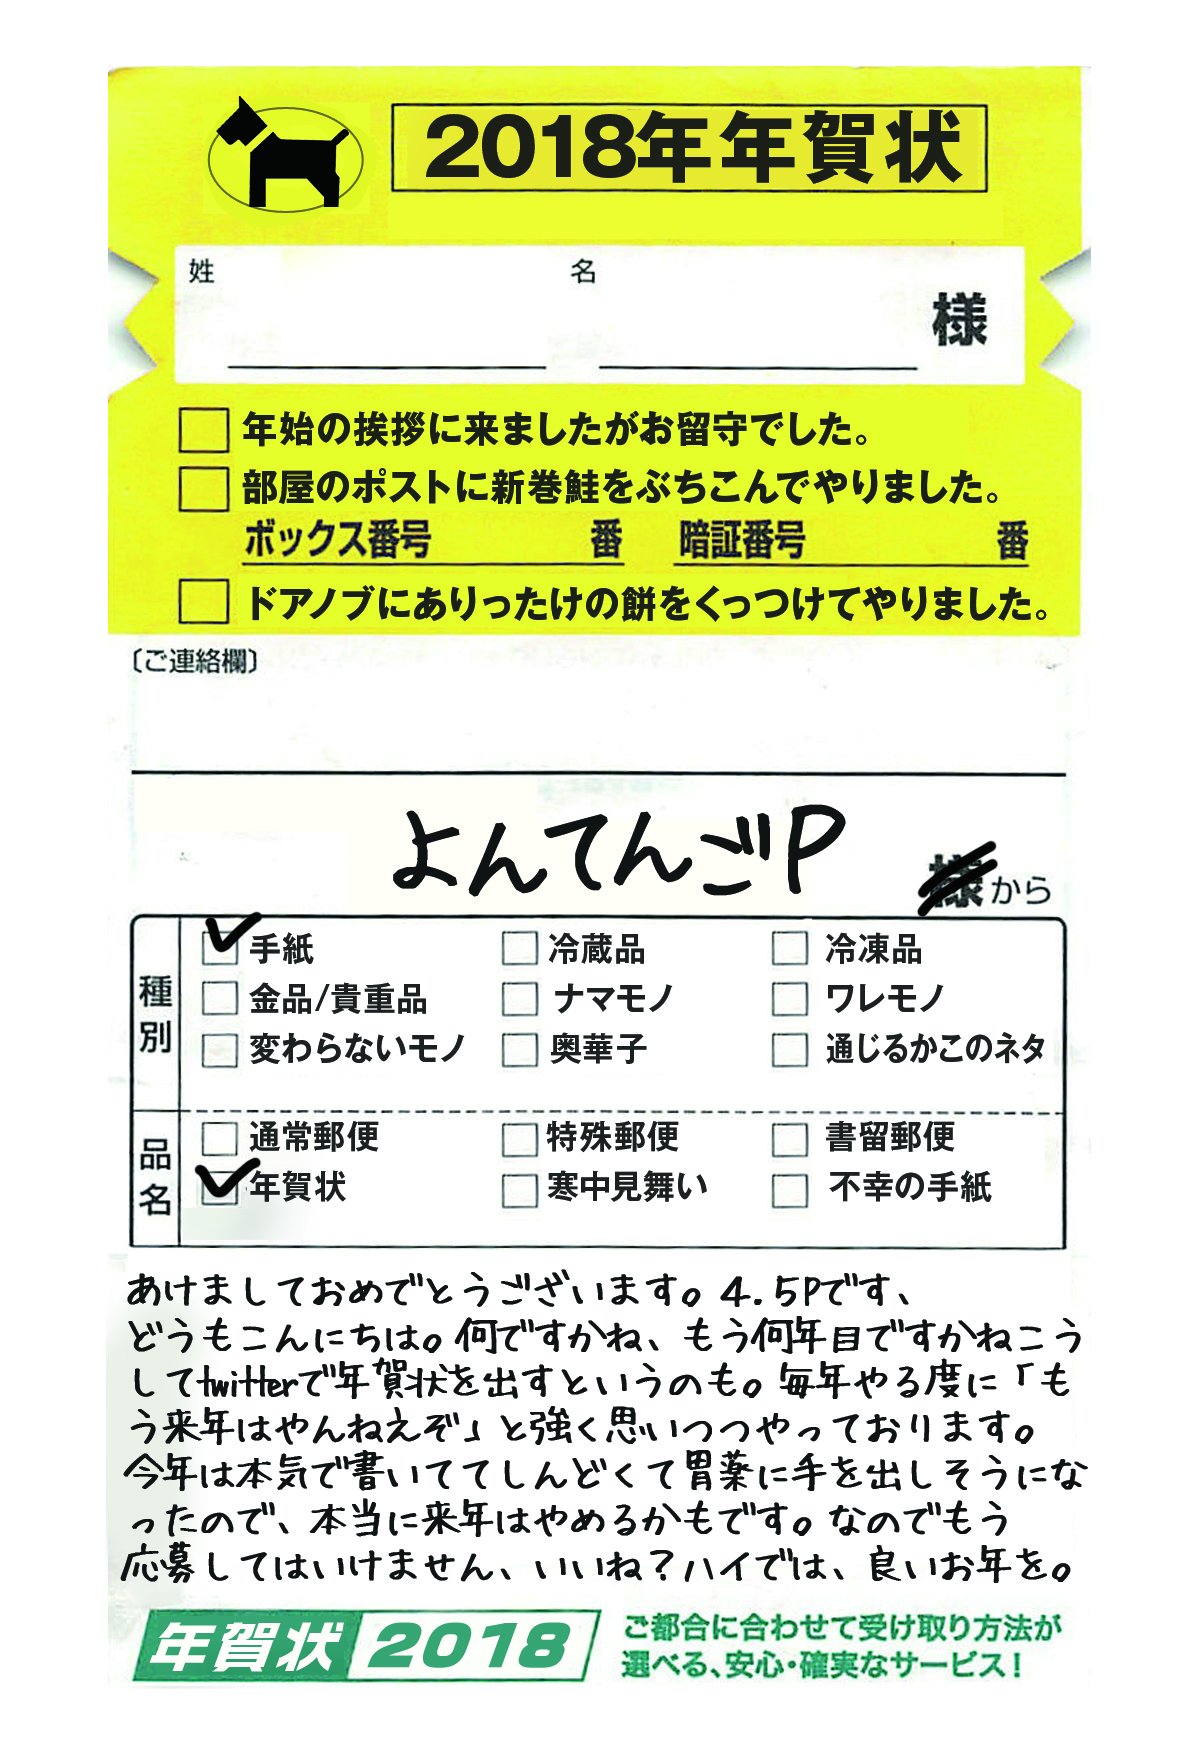 2018年年賀状
姓 名
様
年始の挨拶に来ましたがお留守でした。
部屋のポストに新巻鮭をぶちこんでやりました。
ボックス番号 番 暗証番号 番
ドアノブにありったけの餅をくっつけてやりました。
〔ご連絡欄〕
よんてんごP
様から
種別
手紙 冷蔵品 冷凍品
金品/貴重品 ナマモノ ワレモノ
変わらないモノ 奥華子 通じるかこのネタ
品名
通常郵便 特殊郵便 書留郵便
年賀状 寒中見舞い 不幸の手紙
あけましておめでとうございます。4.5Pです、
どうもこんにちは。何ですかね、もう何年目ですかねこう
してtwitterで年賀状を出すというのも。毎年やる度に「も
う来年はやんねえぞ」と強く思いつつやっております。
今年は本気で書いててしんどくて胃薬に手を出しそうにな
ったので、本当に来年はやめるかもです。なのでもう
応募してはいけません、いいね？ハイでは、良いお年を。
年賀状 2018
ご都合に合わせて受け取り方法が
選べる、安心・確実なサービス！